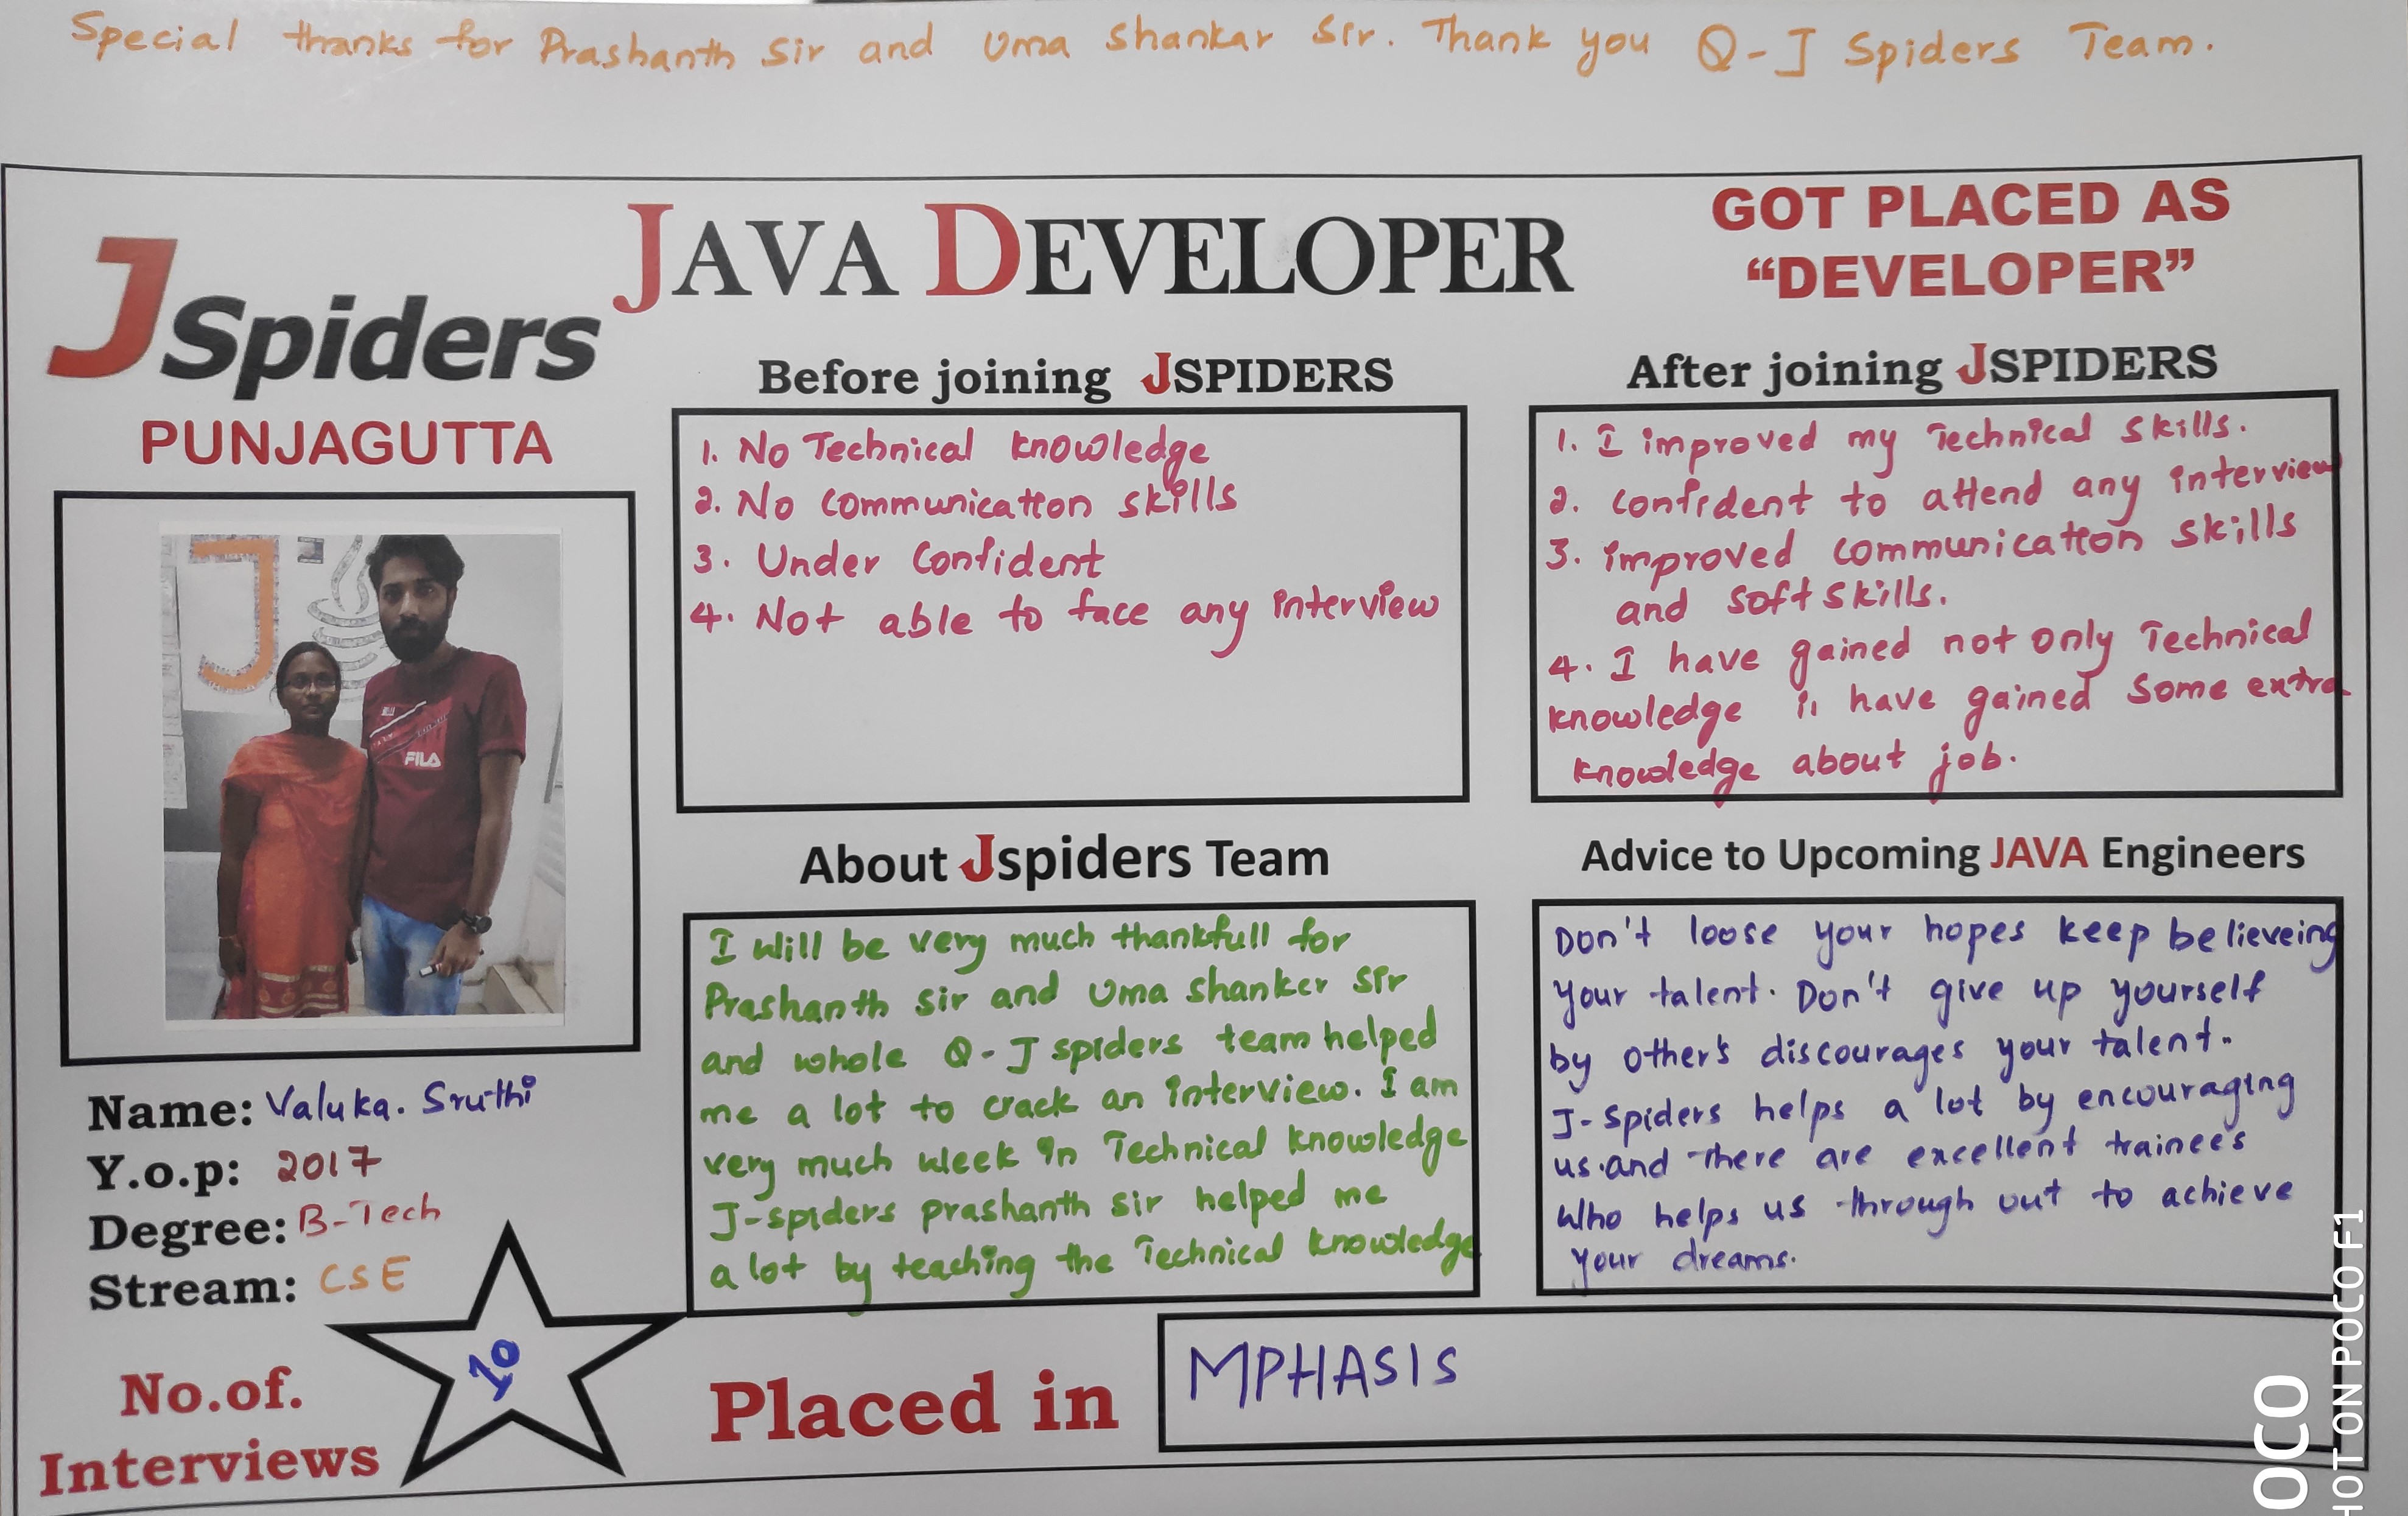 Special thanks for Prashanth Sir and Uma Shankar Sir. Thank you Q-J Spiders Team.
JSpiders
PUNJAGUTTA
JAVA DEVELOPER
GOT PLACED AS
“DEVELOPER”
Before joining JSPIDERS
1. No Technical knowledge
2. No communication skills
3. Under Confident
4. Not able to face any interview
After joining JSPIDERS
1. I improved my Technical skills.
2. confident to attend any interview
3. improved communication skills
and soft skills.
4. I have gained not only Technical
knowledge i have gained some extra
knowledge about job.
FILA
Name: Valuka. Sruthi
Y.o.p: 2017
Degree: B-Tech
Stream: CSE
No.of.
Interviews
10
About Jspiders Team
I will be very much thankfull for
Prashanth sir and Uma shanker sir
and whole Q-J spiders team helped
me a lot to crack an interview. I am
very much week in Technical knowledge
J-spiders prashanth sir helped me
a lot by teaching the Technical knowledge
Advice to Upcoming JAVA Engineers
Don't loose your hopes keep believeing
your talent. Don't give up yourself
by other's discourages your talent.
J-Spiders helps a lot by encouraging
us.and there are excellent trainees
who helps us through out to achieve
your dreams.
Placed in
MPHASIS
OCO
HOT ON POCO F1